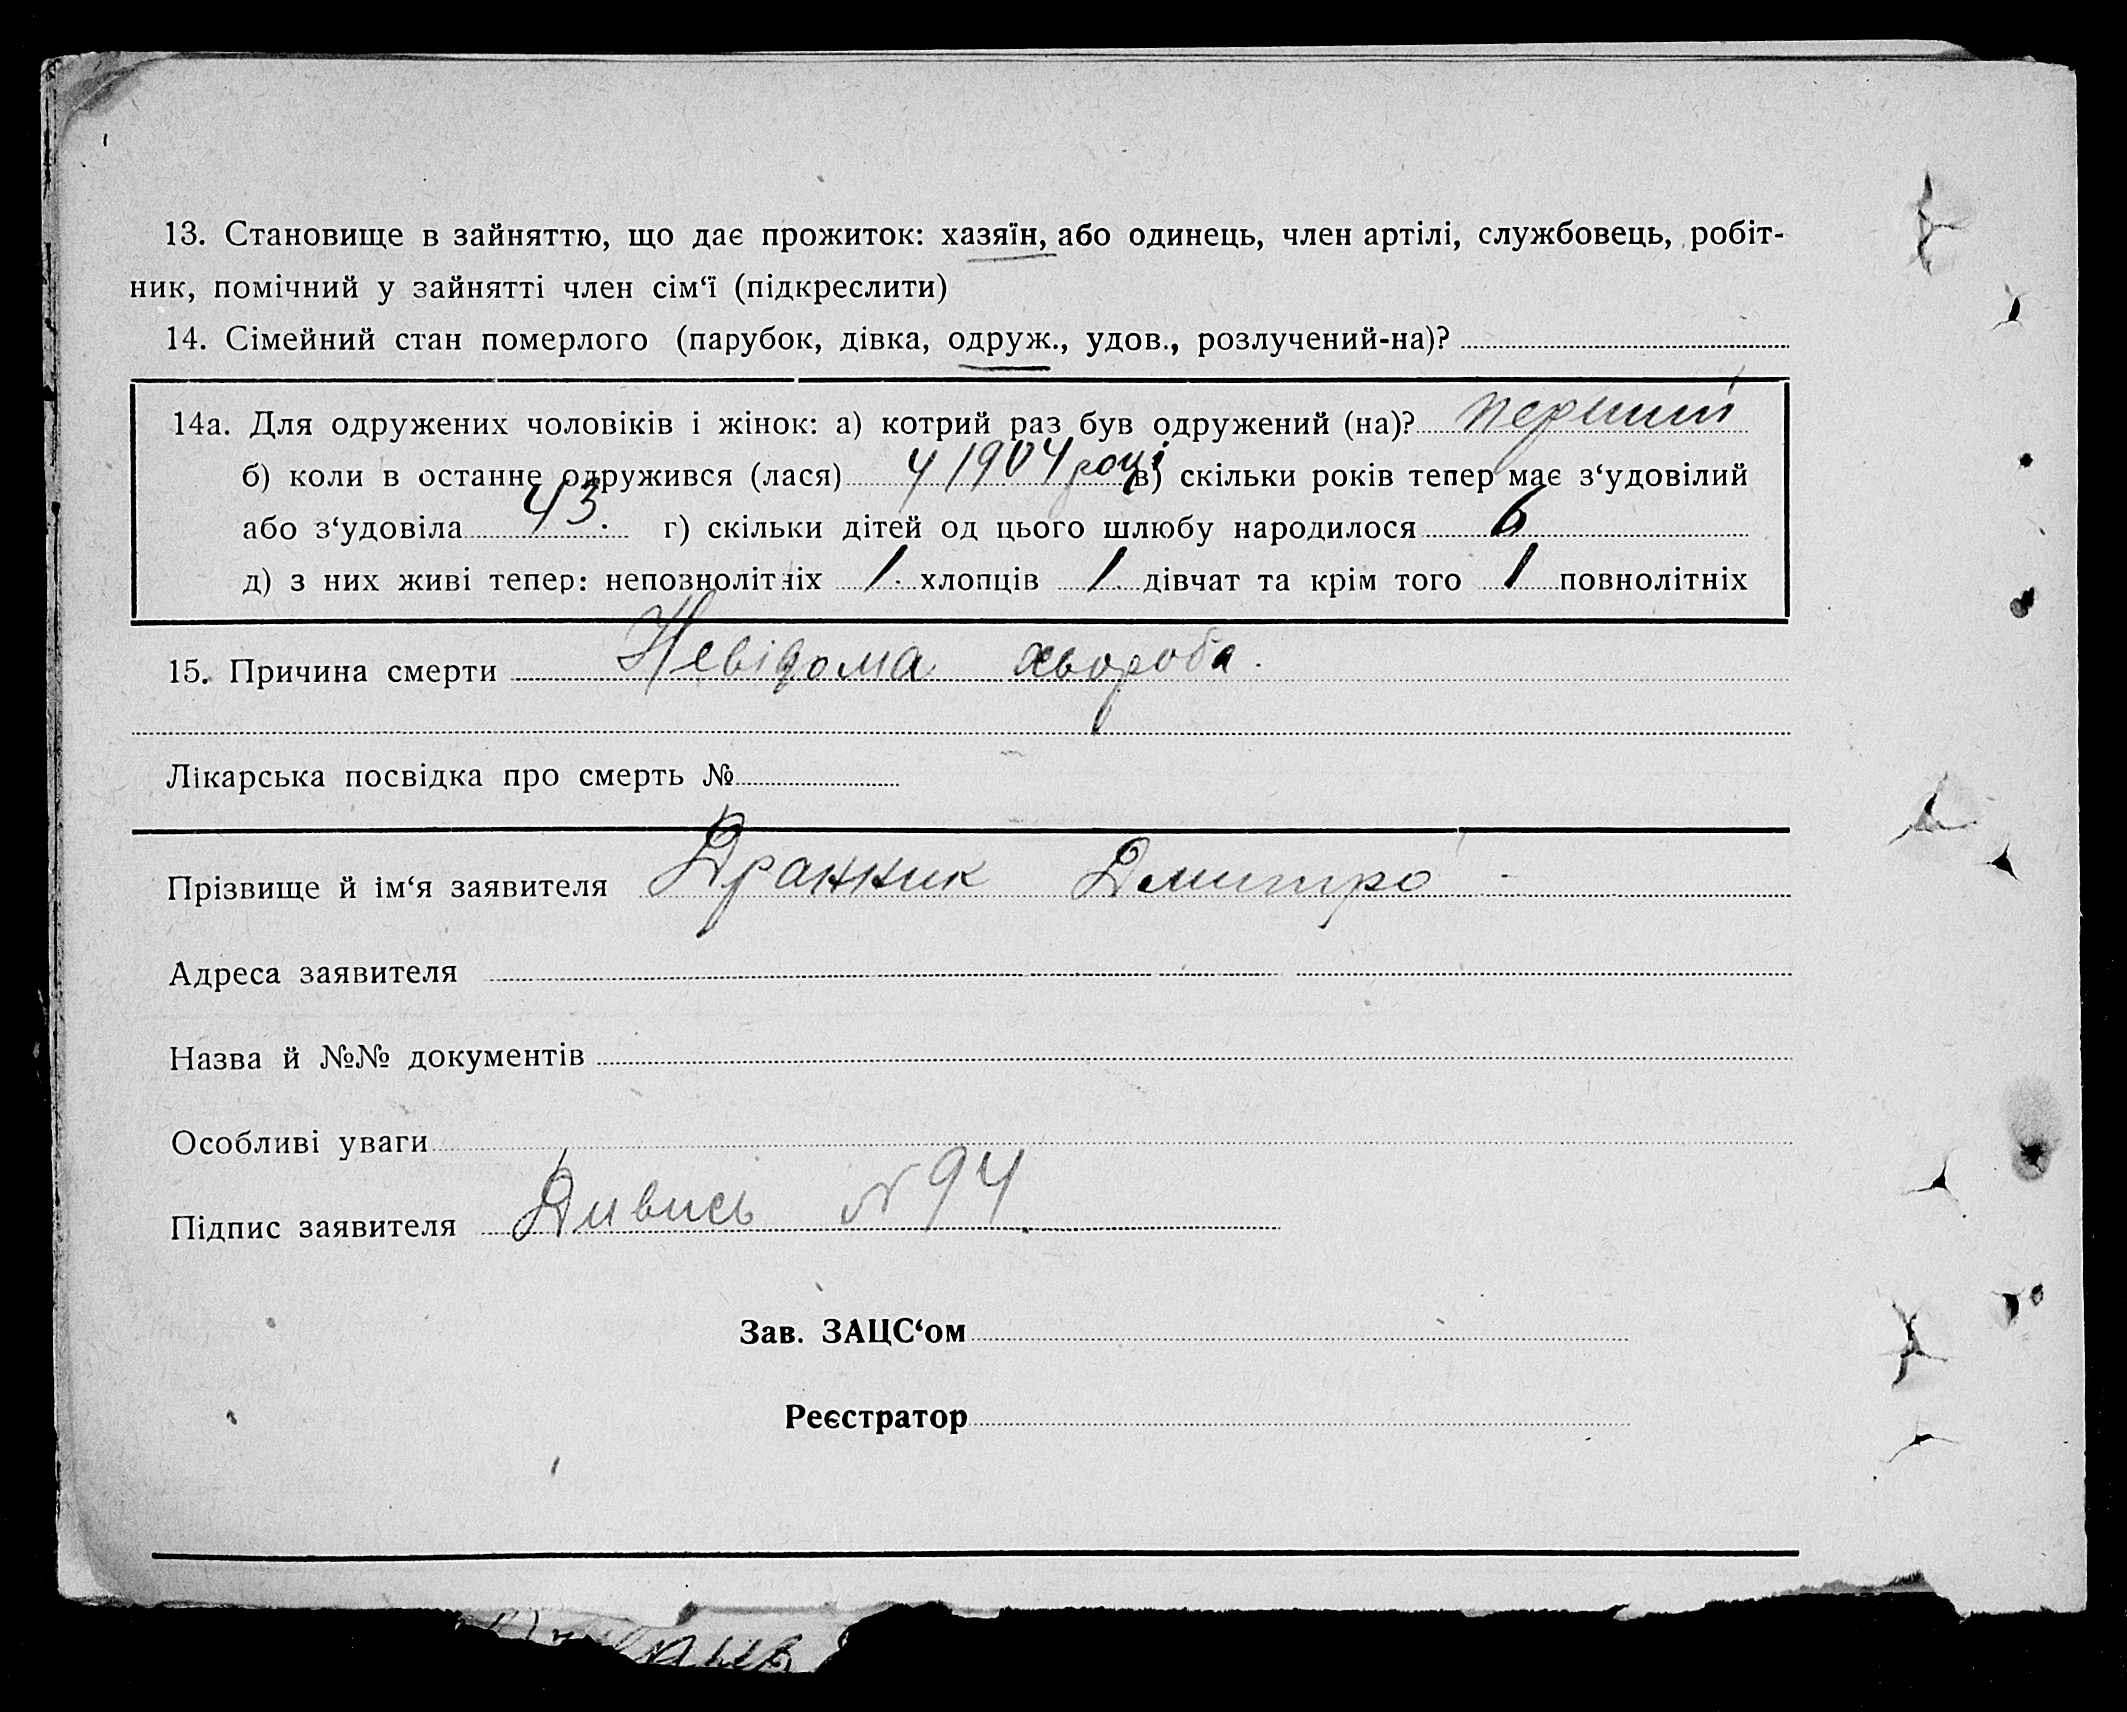 13. Становище в зайняттю, що дає прожиток: хазяїн, або одинець, член артілі, службовець, робіт-
ник, помічний у зайнятті член сім‘ї (підкреслити)
14. Сімейний стан померлого (парубок, дівка, одруж., удов., розлучений-на)?
14а. Для одружених чоловіків і жінок: а) котрий раз був одружений (на)? перший
б) коли в останнє одружився (лася) у 1904 році в) скільки років тепер має з‘удовілий
або з‘удовіла 43. г) скільки дітей од цього шлюбу народилося 6
д) з них живі тепер: неповнолітніх 1. хлопців 1. дівчат та крім того 1 повнолітніх
15. Причина смерти Невідома хвороба.
Лікарська посвідка про смерть №
Прізвище й ім‘я заявителя Дранник Дмитро
Адреса заявителя
Назва й №№ документів
Особливі уваги
Підпис заявителя Дивись № 94
Зав. ЗАЦС‘ом
Реєстратор